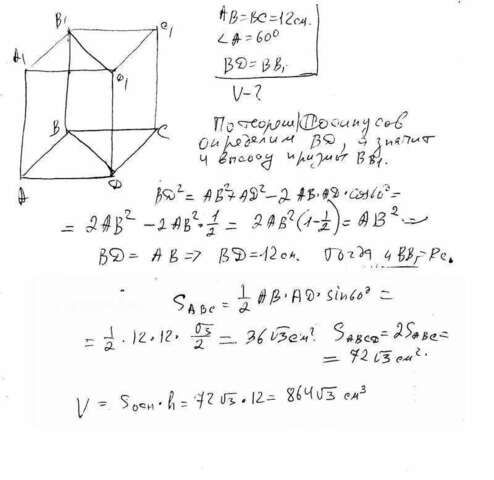 B₁
C₁
A₁
D₁
B
C
A
D
AB=BC=12см.
∠A=60°
BD=BB₁
V-?
По теореме косинусов
определим BD, а значит
и высоту призмы BB₁.
BD²=AB²+AD²-2AB·AD·cos60°=
=2AB²-2AB²·1/2=2AB²(1-1/2)=AB²⇒
BD=AB⇒ BD=12см. Тогда и BB₁=
S_ABC=1/2 AB·AD·sin60°=
=1/2·12·12·√3/2=36√3см². S_ABCD=2S_ABC=
=72√3см².
V=Sосн·h=72√3·12=864√3см³